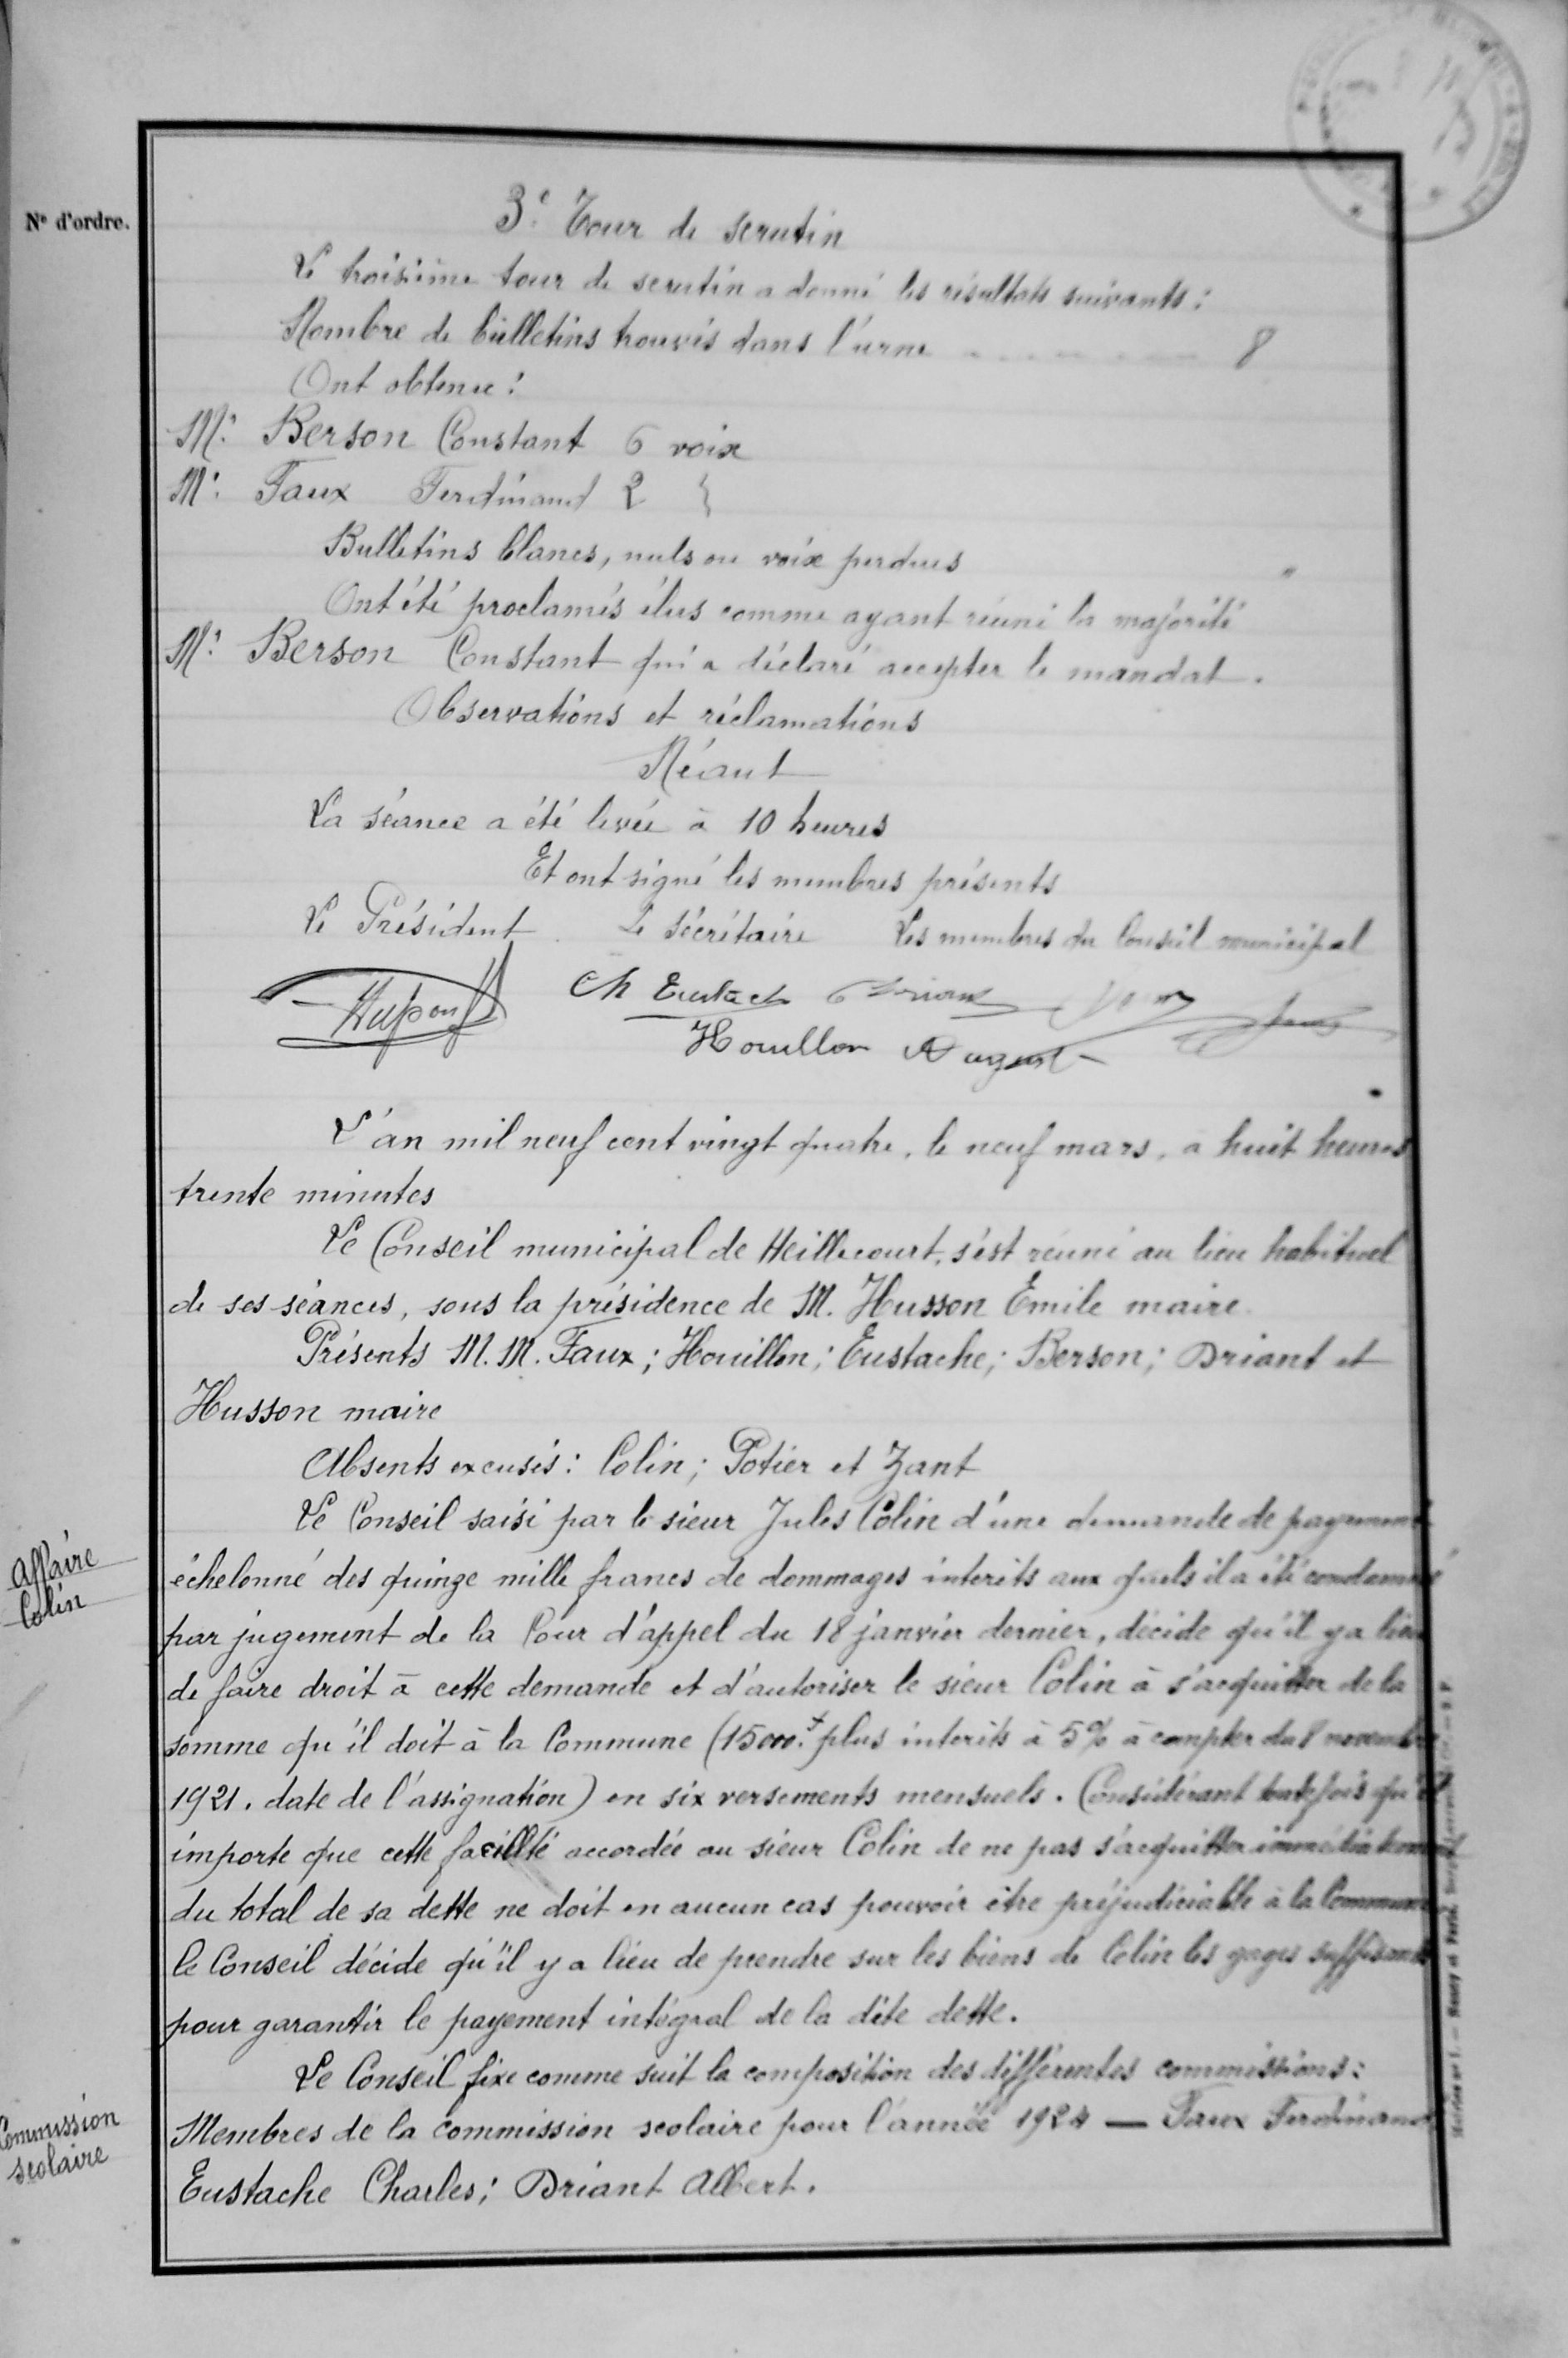 N° d'ordre.
3e Tour de scrutin
Le troisième tour de scrutin a donné les résultats suivants :
Nombre de bulletins trouvés dans l'urne 8
Ont obtenu :
Mr. Berson Constant 6 voix
Mr. Faux Ferdinand 2 "
Bulletins blancs, nuls ou voix perdues "
Ont été proclamés élus comme ayant réuni la majorité
Mr. Berson Constant qui a déclaré accepter le mandat.
Observations et réclamations
Néant
La séance a été levée à 10 heures
Et ont signé les membres présents
Le Président Le Sécrétaire Les membres du Conseil municipal
Ch Eustach
Houillon August
L'an mil neuf cent vingt quatre, le neuf mars, à huit heures
trente minutes
Le Conseil municipal de Heillecourt, s'est réuni au lieu habituel
de ses séances, sous la présidence de M. Husson Emile maire.
Présents M.M. Faux ; Houillon ; Eustache ; Berson ; Driant et
Husson maire
Absents excusés : Colin ; Potier et Zant
Affaire
Colin
Le Conseil saisi par le sieur Jules Colin d'une demande de payement
échelonné des quinze mille francs de dommages interêts aux quels il a été condamné
par jugement de la Cour d'appel du 18 janvier dernier, décide qu'il y a lieu
de faire droit à cette demande et d'autoriser le sieur Colin à s'acquitter de la
somme qu'il doit à la Commune (15000.f plus interêts à 5% à compter du 8 novembre
1921. date de l'assignation) en six versements mensuels. Considérant toutefois qu'il
importe que cette facillté accordée au sieur Colin de ne pas s'acquitter immédiatement
du total de sa dette ne doit en aucun cas pouvoir être préjudiciable à la Commune
le Conseil décide qu'il y a lieu de prendre sur les biens de Colin les gages suffisants
pour garantir le payement intégral de la dite dette.
Le Conseil fixe comme suit la composition des différentes commissions :
Commission
scolaire
Membres de la commission scolaire pour l'année 1924 — Faux Ferdinand
Eustache Charles ; Driant Albert.